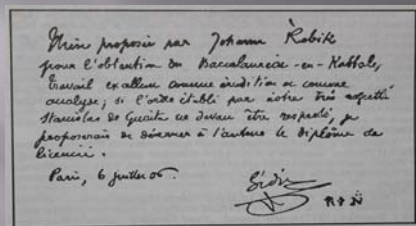 Thèse proposée par Johann Rabik
pour l'obtention du Baccalauréat-en-Kabbale,
travail excellent comme érudition et comme
analyse; si l'ordre établi par notre très regretté
Stanislas de Guaita ne devait être respecté, je
proposerais de décerner à l'auteur le diplôme de
licencié.
Paris, 6 juillet 06.
Sédir